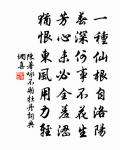 一種仙根自洛陽
養深何事不
芳心未必全羞澀
猶恨東風用力輕
陳著咏不開牡丹詞典
網喜